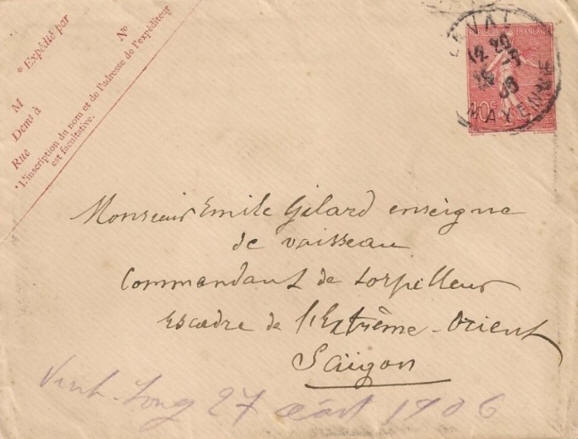 * Expédié par
Nº
M
Demt à
Rue
* L'inscription du nom et de l'adresse de l'expéditeur
est facultative.
LAVAL
12 25
MAYENNE
10c
Monsieur Emile Gilard enseigne
de vaisseau
Commandant de torpilleur
Escadre de l'Extrême-Orient
Saïgon
Vinh-Long 27 août 1906